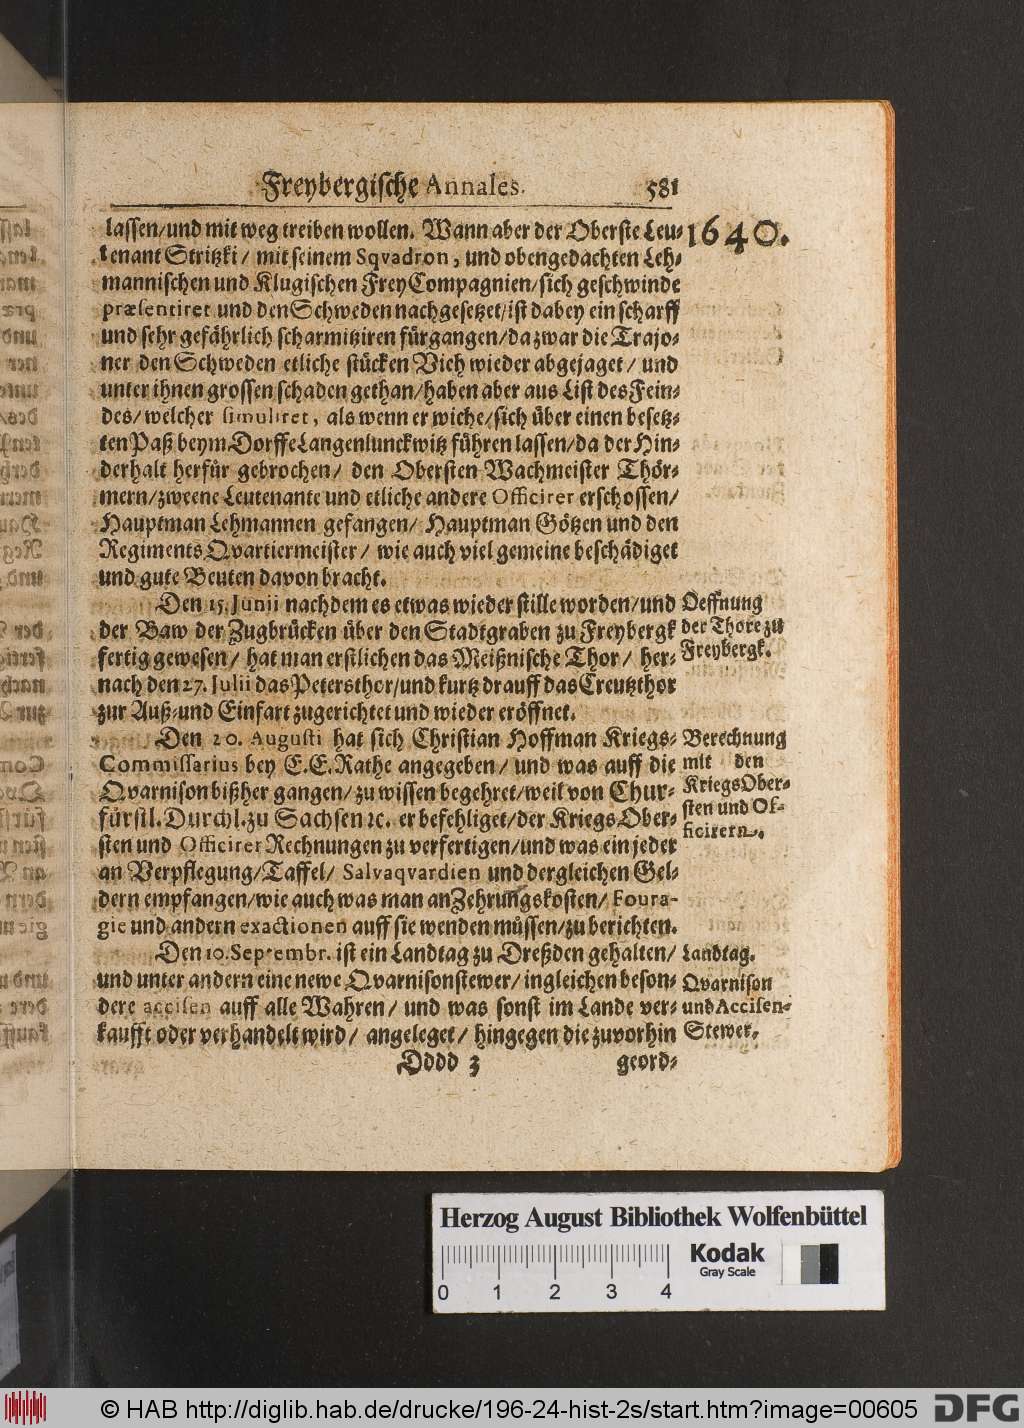 Freybergische Annales. 581
1640.
lassen/und mit weg treiben wollen. Wann aber der Oberste Leu-
tenant Stritzki/ mit seinem Sqvadron, und obengedachten Leh-
mannischen und Klugischen FreyCompagnien/sich geschwinde
præsentiret und den Schweden nachgesetzet/ist dabey ein scharff
und sehr gefährlich scharmitziren fürgangen/da zwar die Trajo-
ner den Schweden etliche stücken Vieh wieder abgejaget/ und
unter ihnen grossen schaden gethan/haben aber aus List des Fein-
des/welcher simuliret, als wenn er wiche/sich über einen besetz-
ten Paß beym Dorffe Langenlunckwitz führen lassen/da der Hin-
derhalt herfür gebrochen/ den Obersten Wachmeister Thör-
mern/zweene Leutenante und etliche andere Officirer erschossen/
Hauptman Lehmannen gefangen/ Hauptman Götzen und den
Regiments Qvartiermeister/ wie auch viel gemeine beschädiget
und gute Beuten davon bracht.
Den 15. Junii nachdem es etwas wieder stille worden/und
der Baw der Zugbrücken über den Stadtgraben zu Freybergk
fertig gewesen/ hat man erstlichen das Meißnische Thor/ her-
nach den 27. Julii das Petersthor/und kurtz drauff das Creutzthor
zur Auß-und Einfart zugerichtet und wieder eröffnet.
Oeffnung
der Thore zu
Freybergk.
Den 20. Augusti hat sich Christian Hoffman Kriegs-
Commissarius bey E.E.Rathe angegeben/ und was auff die
Qvarnison bißher gangen/zu wissen begehret/weil von Chur-
fürstl. Durchl. zu Sachsen ꝛc. er befehliget/der Kriegs Ober-
sten und Officirer Rechnungen zu verfertigen/und was ein jeder
an Verpflegung/Taffel/ Salvaqvardien und dergleichen Gel-
dern empfangen/wie auch was man an Zehrungskosten/ Foura-
gie und andern exactionen auff sie wenden müssen/zu berichten.
Berechnung
mit den
KriegsOber-
sten und Of-
ficirern.
Den 10. Septembr. ist ein Landtag zu Dreßden gehalten/
und unter andern eine newe Qvarnisonstewer/ingleichen beson-
dere accisen auff alle Wahren/ und was sonst im Lande ver-
kaufft oder verhandelt wird/ angeleget/ hingegen die zuvorhin
Landtag.
Qvarnison
und Accisen-
Stewer.
Dddd 3 geord-
Herzog August Bibliothek Wolfenbüttel
Kodak
Gray Scale
0 1 2 3 4
© HAB http://diglib.hab.de/drucke/196-24-hist-2s/start.htm?image=00605
DFG